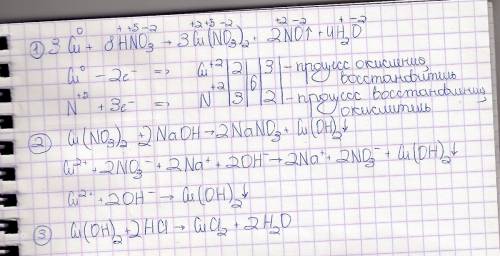 0 + +5 -2 +2 +5 -2 +2 -2 + -2
① 3Cu + 8HNO₃ → 3Cu(NO₃)₂ + 2NO↑ + 4H₂O
Cu⁰ - 2e⁻ => Cu⁺² | 2 | | 3 | - процесс окисления,
6 восстановитель
N⁺⁵ + 3e⁻ => N⁺² | 3 | | 2 | - процесс восстановления,
окислитель
② Cu(NO₃)₂ + 2NaOH → 2NaNO₃ + Cu(OH)₂↓
Cu²⁺ + 2NO₃⁻ + 2Na⁺ + 2OH⁻ → 2Na⁺ + 2NO₃⁻ + Cu(OH)₂↓
Cu²⁺ + 2OH⁻ → Cu(OH)₂↓
③ Cu(OH)₂ + 2HCl → CuCl₂ + 2H₂O